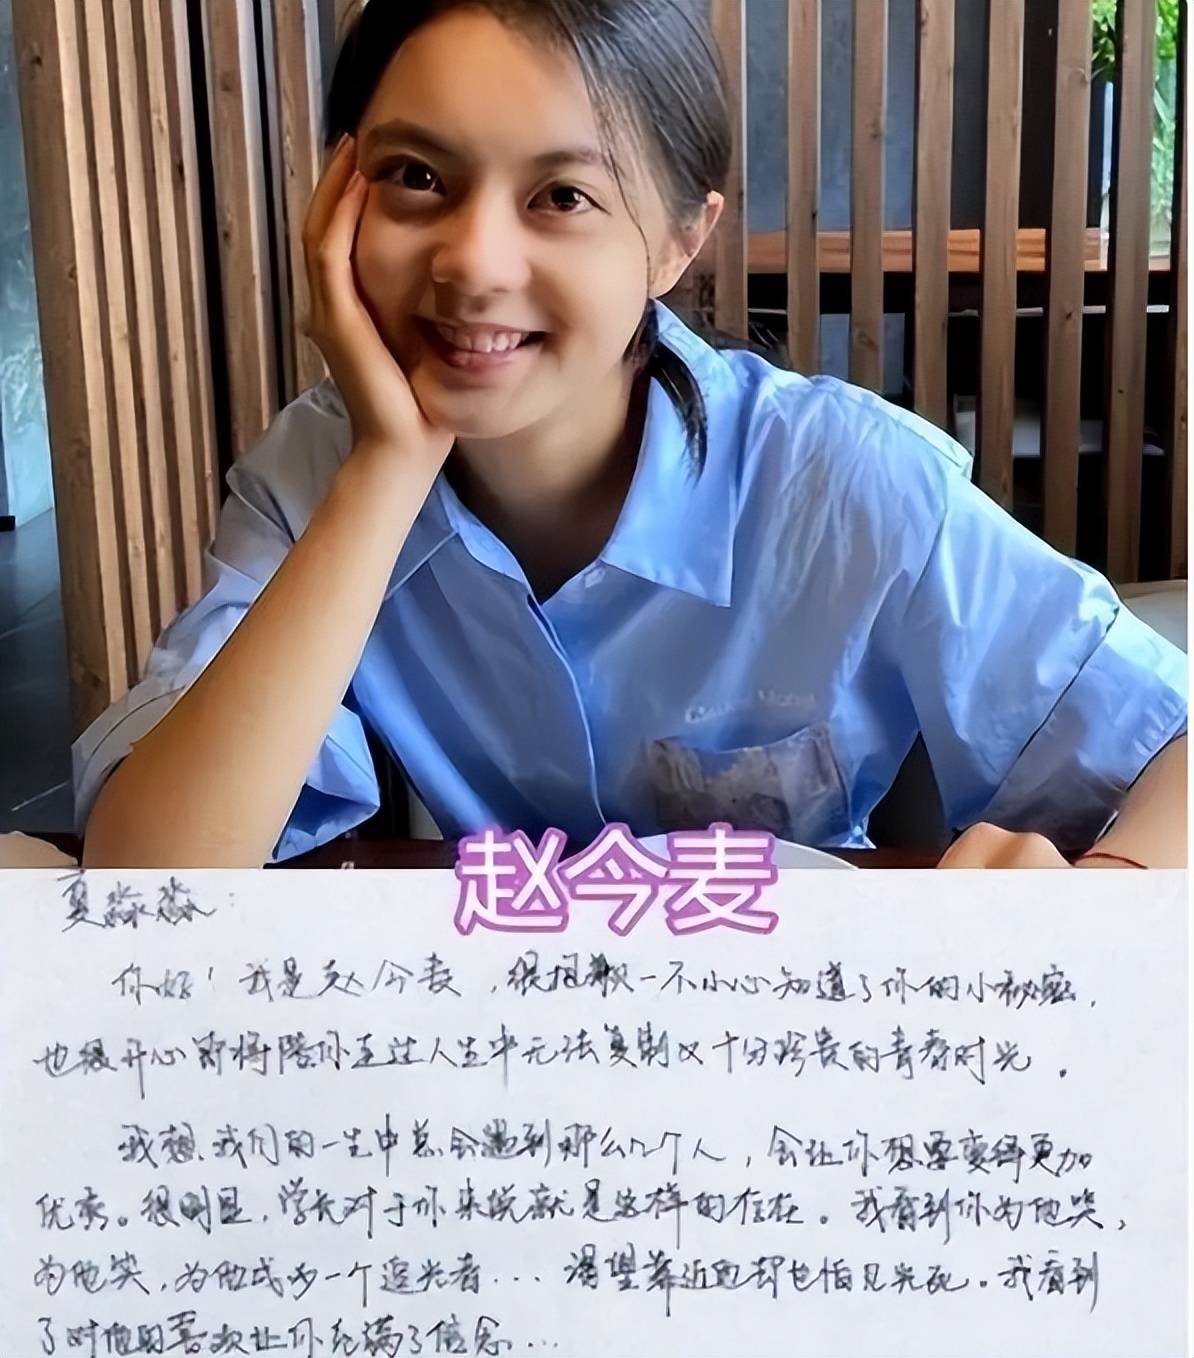 赵今麦
夏淼淼：
你好！我是赵今麦，很抱歉一不小心知道了你的小秘密，
也很开心即将陪你走过人生中无法复制又十分珍贵的青春时光。
我想，我们的一生中总会遇到那么几个人，会让你想要变得更加
优秀。很明显，学长对于你来说就是这样的存在。我看到你为他哭，
为他笑，为他成为一个追光者... 渴望靠近他却也怕见光死。我看到
了对他的喜欢让你充满了信念...